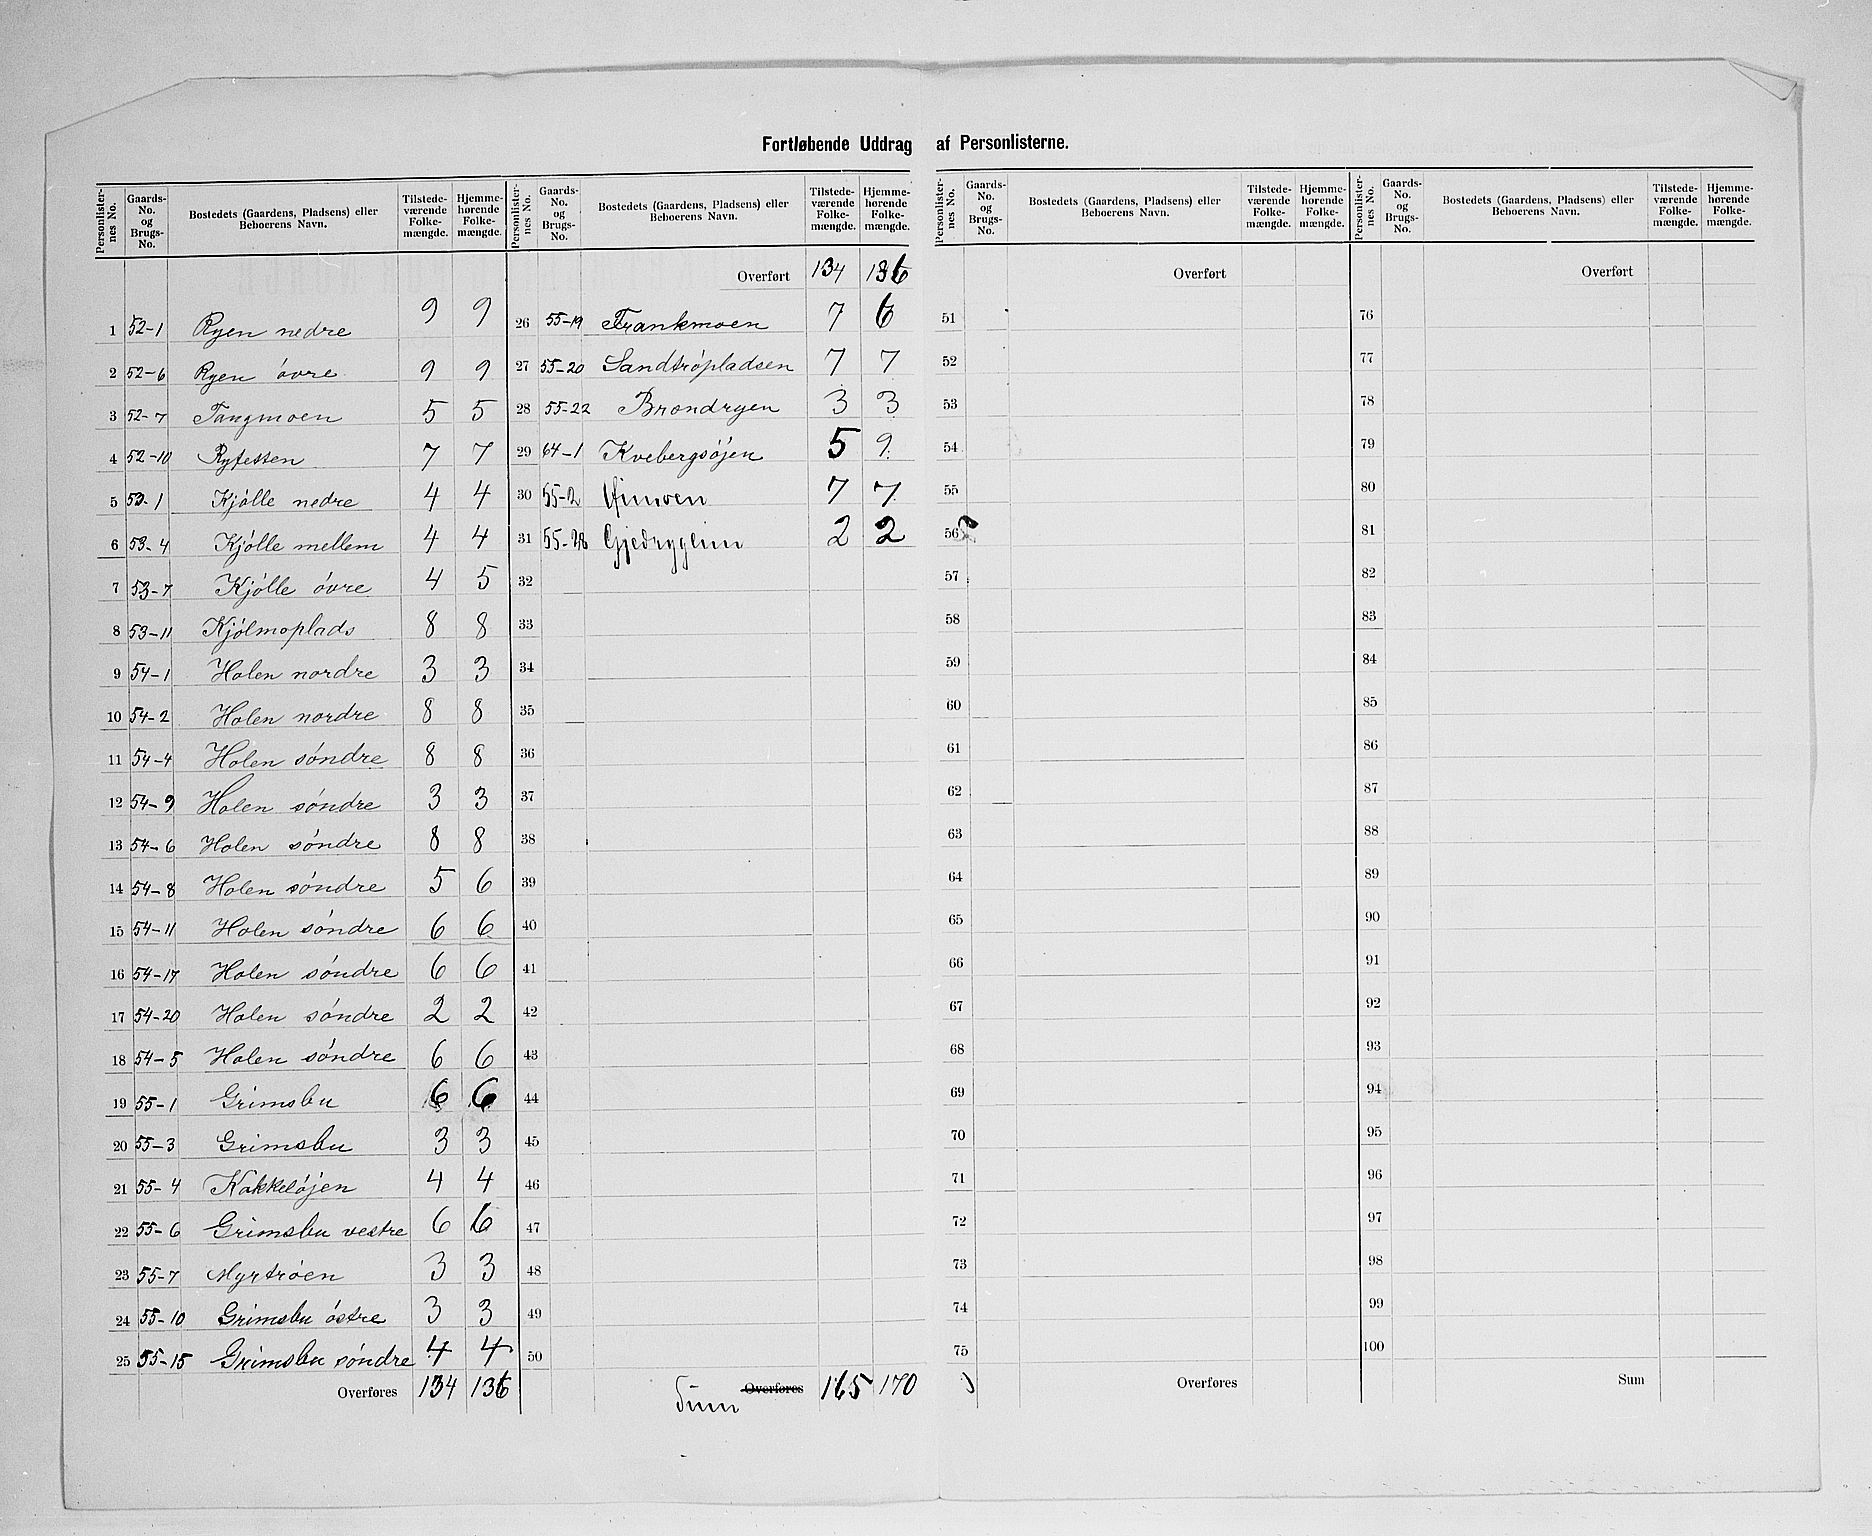 Fortløbende Uddrag af Personlisterne.
Personlister-nes No. Gaards-No. og Brugs-No. Bostedets (Gaardens, Pladsens) eller Beboerens Navn. Tilstede-værende Folke-mængde. Hjemme-hørende Folke-mængde.
1 52-1 Ryen nedre 9 9
2 52-6 Ryen óvre 9 9
3 52-7 Tangmoen 5 5
4 52-10 Rytetten 7 7
5 53-1 Kjólle nedre 4 4
6 53-4 Kjólle mellem 4 4
7 53-7 Kjólle óvre 4 5
8 53-11 Kjólmoplads 8 8
9 54-1 Holen nordre 3 3
10 54-2 Holen nordre 8 8
11 54-4 Holen sóndre 8 8
12 54-9 Holen sóndre 3 3
13 54-6 Holen sóndre 8 8
14 54-8 Holen sóndre 5 6
15 54-11 Holen sóndre 6 6
16 54-17 Holen sóndre 6 6
17 54-20 Holen sóndre 2 2
18 54-5 Holen sóndre 6 6
19 55-1 Grimsbu 6 6
20 55-3 Grimsbu 3 3
21 55-4 Kakkelójen 4 4
22 55-6 Grimsbu vestre 6 6
23 55-7 Myrtróen 3 3
24 55-10 Grimsbu óstre 3 3
25 55-15 Grimsbu sóndre 4 4
Overføres 134 136
Personlister-nes No. Gaards-No. og Brugs-No. Bostedets (Gaardens, Pladsens) eller Beboerens Navn. Tilstede-værende Folke-mængde. Hjemme-hørende Folke-mængde.
Overført 134 136
26 55-19 Frankmoen 7 6
27 55-20 Sandtrópladsen 7 7
28 55-22 Brondryen 3 3
29 64-1 Kvebergsójen 5 9
30 55-2 Øimoen 7 7
31 55-28 2 2
32
33
34
35
36
37
38
39
40
41
42
43
44
45
46
47
48
49
50
Overføres Sum 165 170
Personlister-nes No. Gaards-No. og Brugs-No. Bostedets (Gaardens, Pladsens) eller Beboerens Navn. Tilstede-værende Folke-mængde. Hjemme-hørende Folke-mængde.
Overført
51
52
53
54
55
56
57
58
59
60
61
62
63
64
65
66
67
68
69
70
71
72
73
74
75
Overføres
Personlister-nes No. Gaards-No. og Brugs-No. Bostedets (Gaardens, Pladsens) eller Beboerens Navn. Tilstede-værende Folke-mængde. Hjemme-hørende Folke-mængde.
Overført
76
77
78
79
80
81
82
83
84
85
86
87
88
89
90
91
92
93
94
95
96
97
98
99
100
Sum